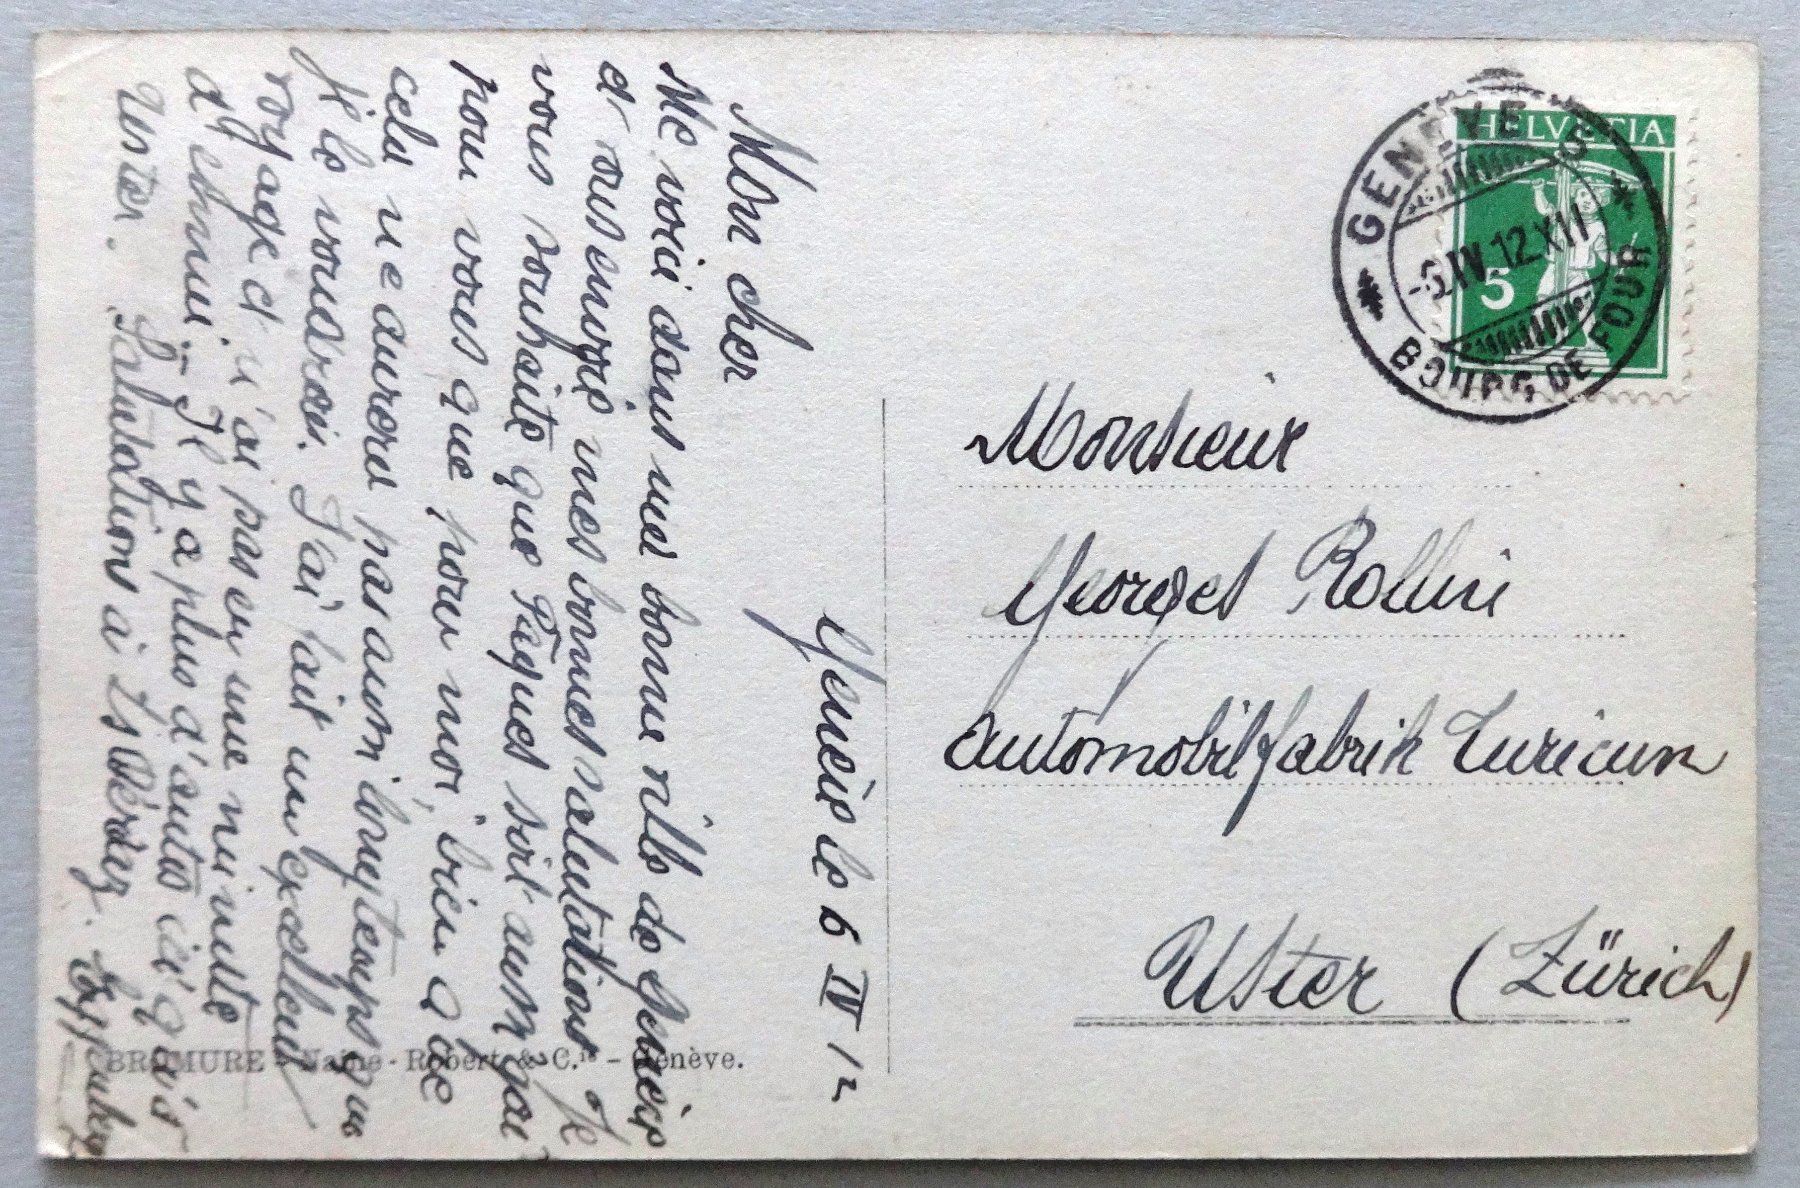 Genève le 6 IV 12
Mon cher
Me voici dans ma bonne ville de Genève
et vous envoie mes bonnes salutations. Je
vous souhaite que Pâques soit aussi gai
pour vous que pour moi, bien que
cela ne durera pas aussi longtemps que
je le voudrais. J'ai fait un excellent
voyage et n'ai pas eu une minute
d'ennui. Il y a plus d'autos ici qu'à
Uster. Salutations à
HELVETIA
5
GENÈVE 5
-6.IV.12.XII
BOURG DE FOUR
Monsieur
Georges Rollini
Automobilfabrik Turicum
Uster (Zürich)
BROMURE - Naine-Robert & C.ie - Genève.